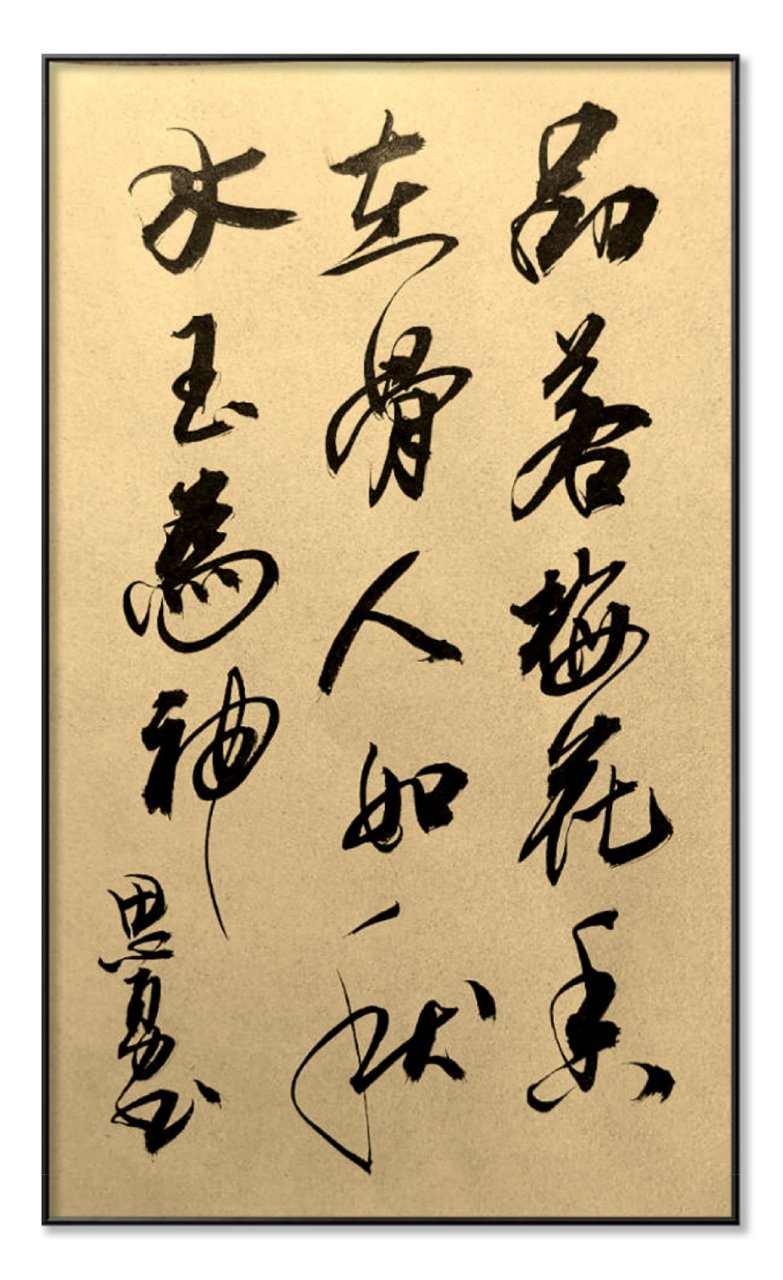 品若梅花香
在骨人如秋
水玉为神
思勇书